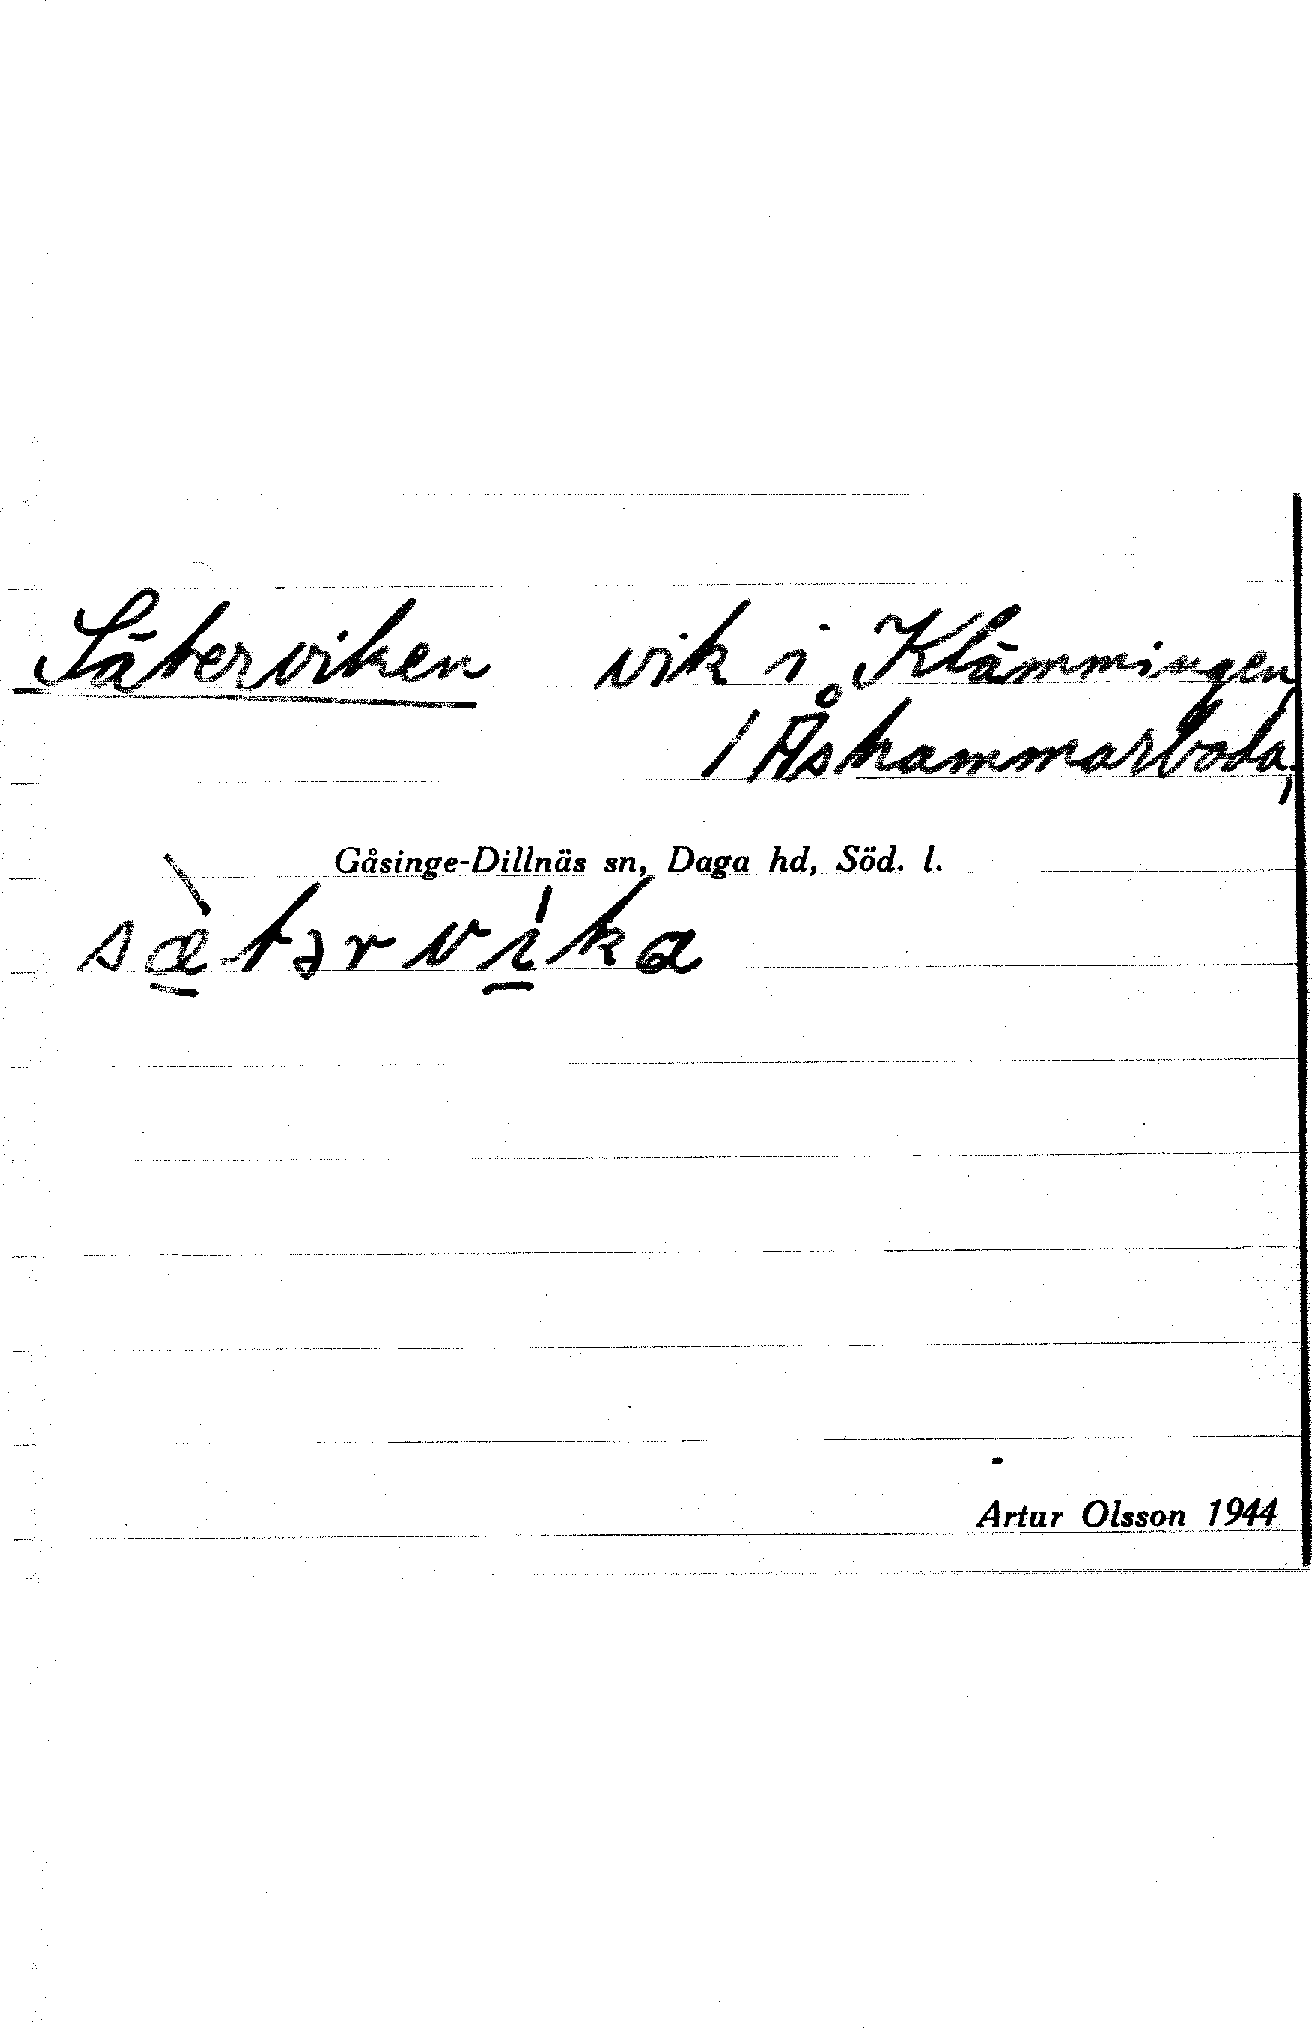 Säterviken vik i Klämmingen
/ Åshammarboda,
Gåsinge-Dillnäs sn, Daga hd, Söd. l.
sæ̀tərvíka
Artur Olsson 1944